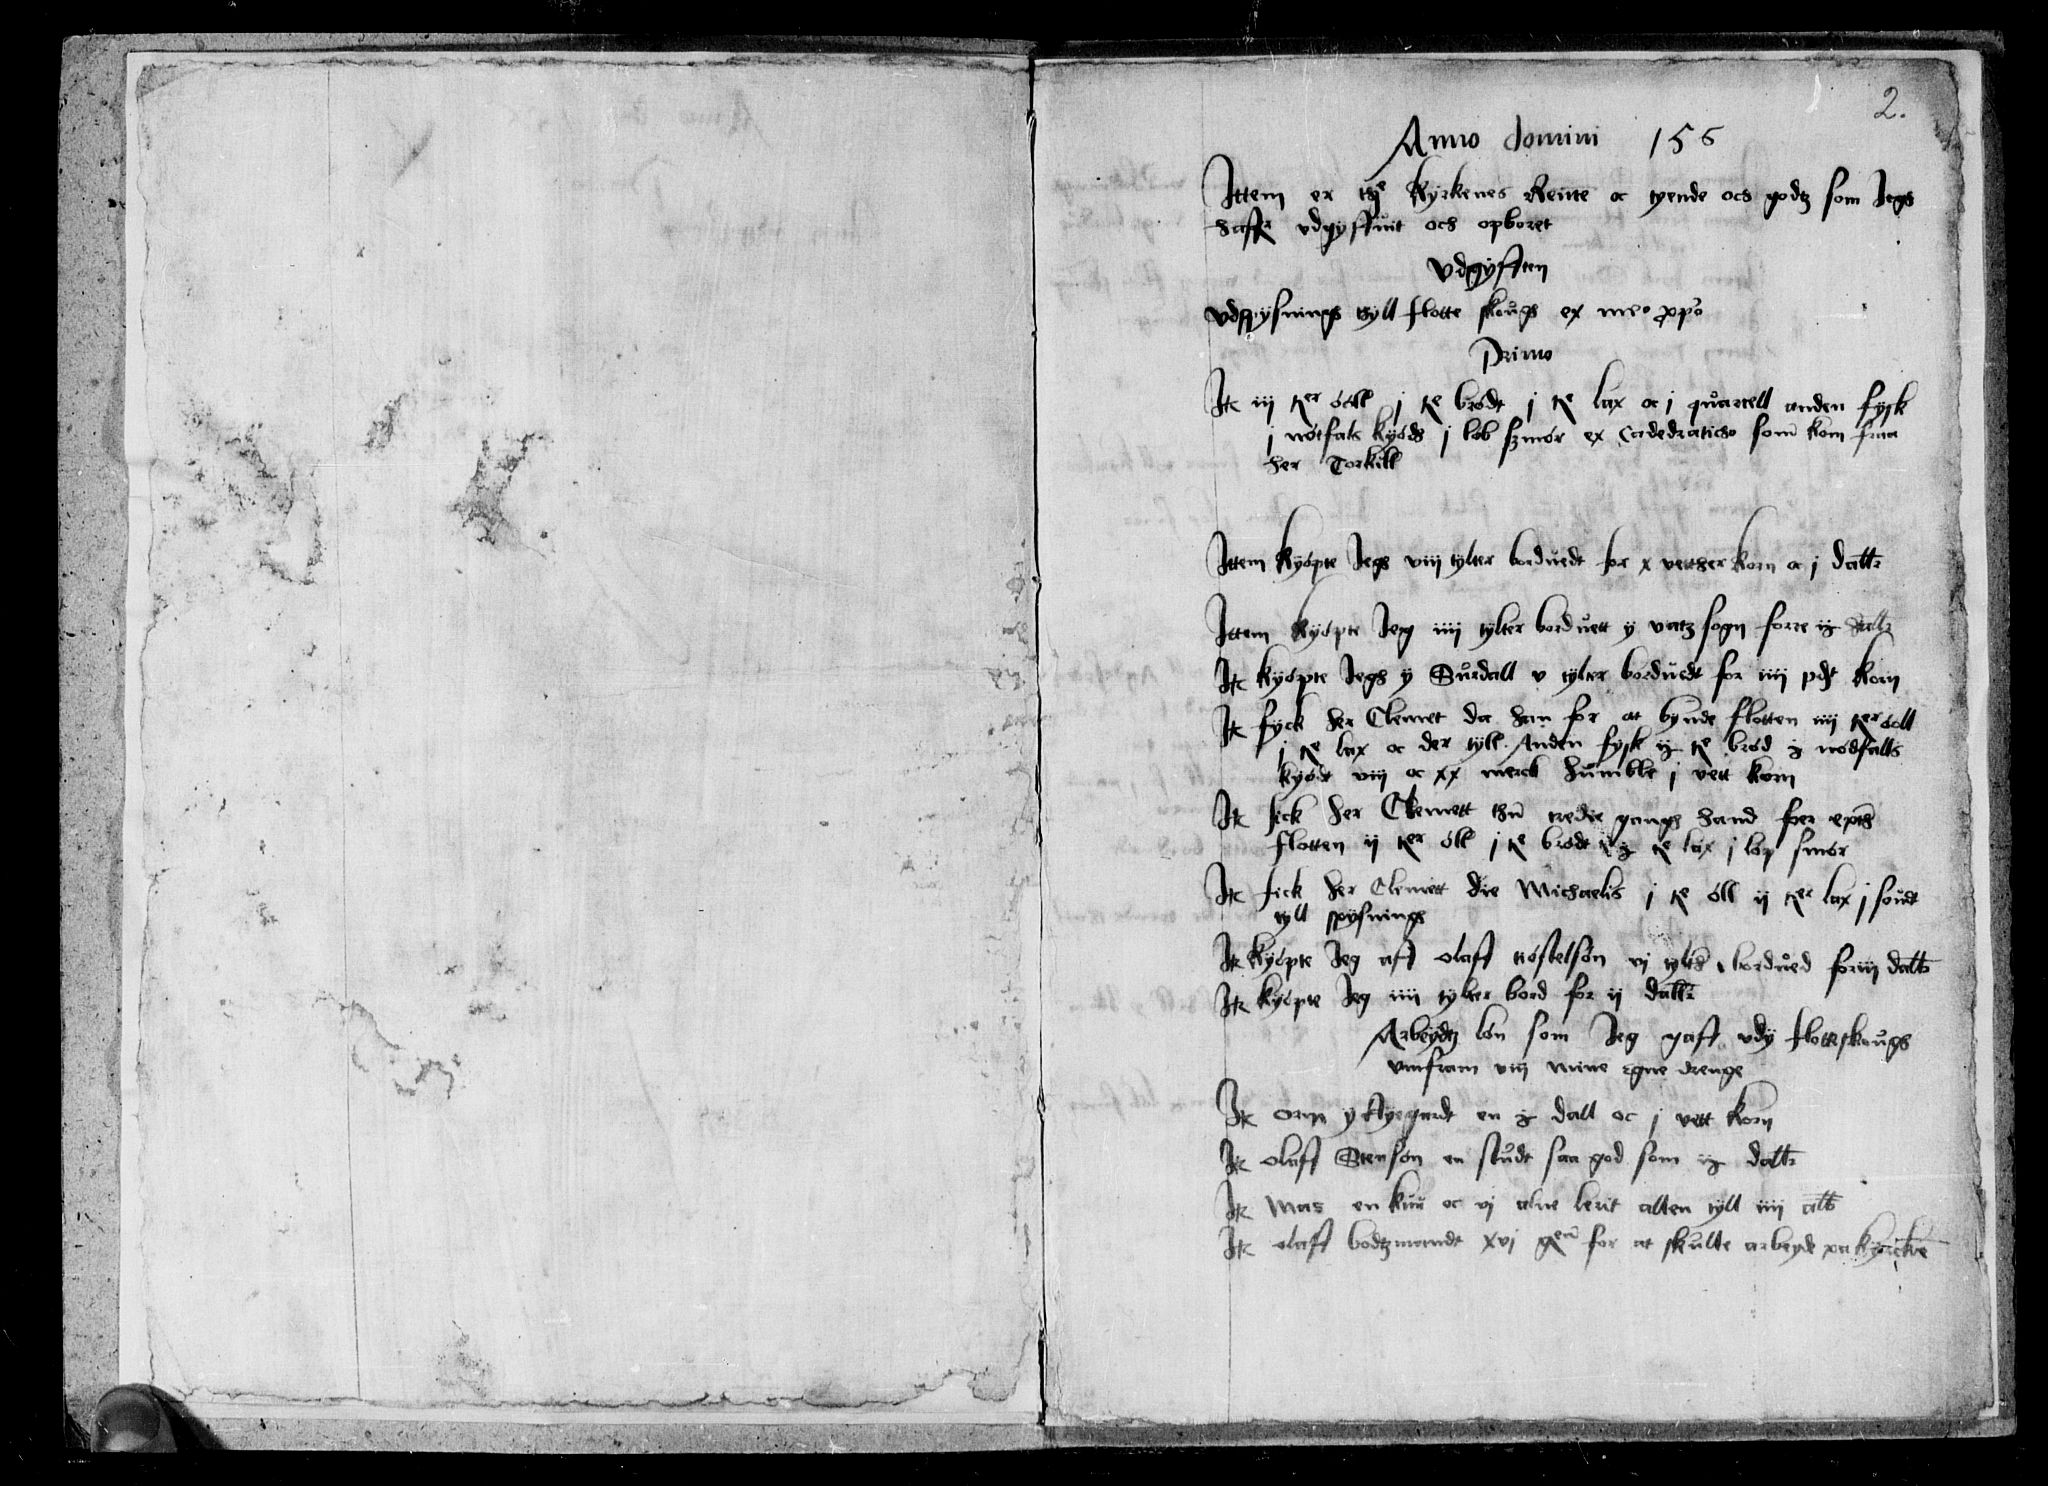 2.
Anno domini 155
Ittem er thȝ Kyrkenes Rente oc tyende och godtz som Jegh
haffr vdgyffuit och opboret
Vdgyfften
Vdspysningh tyll flotte skough ex meo ppo
Primo
Itē iij tner óóll j tē bródt j tē lax oc j quartell anden fysk
j nótfals kyódh j lób szmór ex Cadedraticho som kom fraa
her Torkill
Ittem kyópte Jegh viij tylter borduedt for x vetther korn oc j dallr
Ittem kyópte Jeg iiij tylter borduett y vatz sogn forre ij dallr
Itē kyópte Jegh y Surdall v tylter borduedt for iiij pdt korn
Itē fyck her Clemet da han for at bynde flotten iiij tner óóll
j tē lax oc der tyll Anden fysk ij tē bród ij nódfalls
kyódt viij oc xx merck humble j vett korn
Itē fick her Clemett thn tredie gangh hand foer epth
flotten ij tner óll j tē bródt ij tē lax j lóp smór
Itē fick her Clemett die Michaelis j tē óll ij tner lax j soudt
tyll spysningh
Itē kyópte Jeg aff olaff tióstelsón vj tylth bordued for iij dallr
Itē kyópte Jeg iiij tylter bord for ij dallr
Arbeydtz lón som Jeg gaff vdy flotteskough
vmfram viij mine egne drenge
Itē orm y Øyegardt en ij dall oc j vett korn
Itē oluff Stensón en studt saa god som ij dallr
Itē Mas en kuu oc vj alne lerit alten tyll iiij all
Itē olaff bodtzmandt xvj gen for at skulle arbeyde paa kyrcken